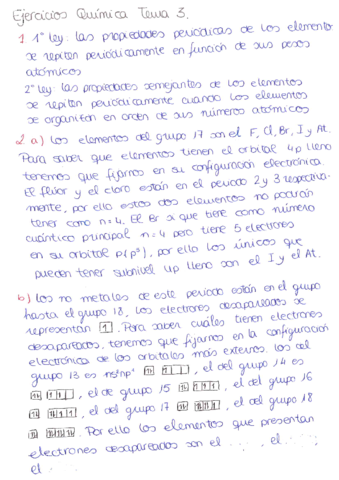 Ejercicios Química Tema 3.
1 1ª ley: las propiedades periódicas de los elemento
se repiten periódicamente en función de sus pesos
atómicos
2ª ley: las propiedades semejantes de los elementos
se repiten periódicamente cuando los elementos
se organizan en orden de sus números atómicos
2 a) Los elementos del grupo 17 son el F, Cl, Br, I y At.
Para saber que elementos tienen el orbital 4p lleno
tenemos que fijarnos en su configuración electrónica.
El flúor y el cloro están en el periodo 2 y 3 respectiva-
mente, por ello estos dos elementos no podrán
tener como n=4. El Br si que tiene como número
cuántico principal n=4 pero tiene 5 electrones
en su orbital p (p⁵), por ello los únicos que
pueden tener subnivel 4p lleno son el I y el At.
b) Los no metales de este periodo están en el grupo
hasta el grupo 18, los electrones desapareados se
representan 1. Para saber cuáles tienen electrones
desapareados, tenemos que fijarnos en la configuración
electrónica de los orbitales más externos. los del
grupo 13 es ns²np¹, el del grupo 14 es
, el de grupo 15, el del grupo 16
, el del grupo 17, el del grupo 18
. Por ello los elementos que presentan
electrones desapareados son el, el
el